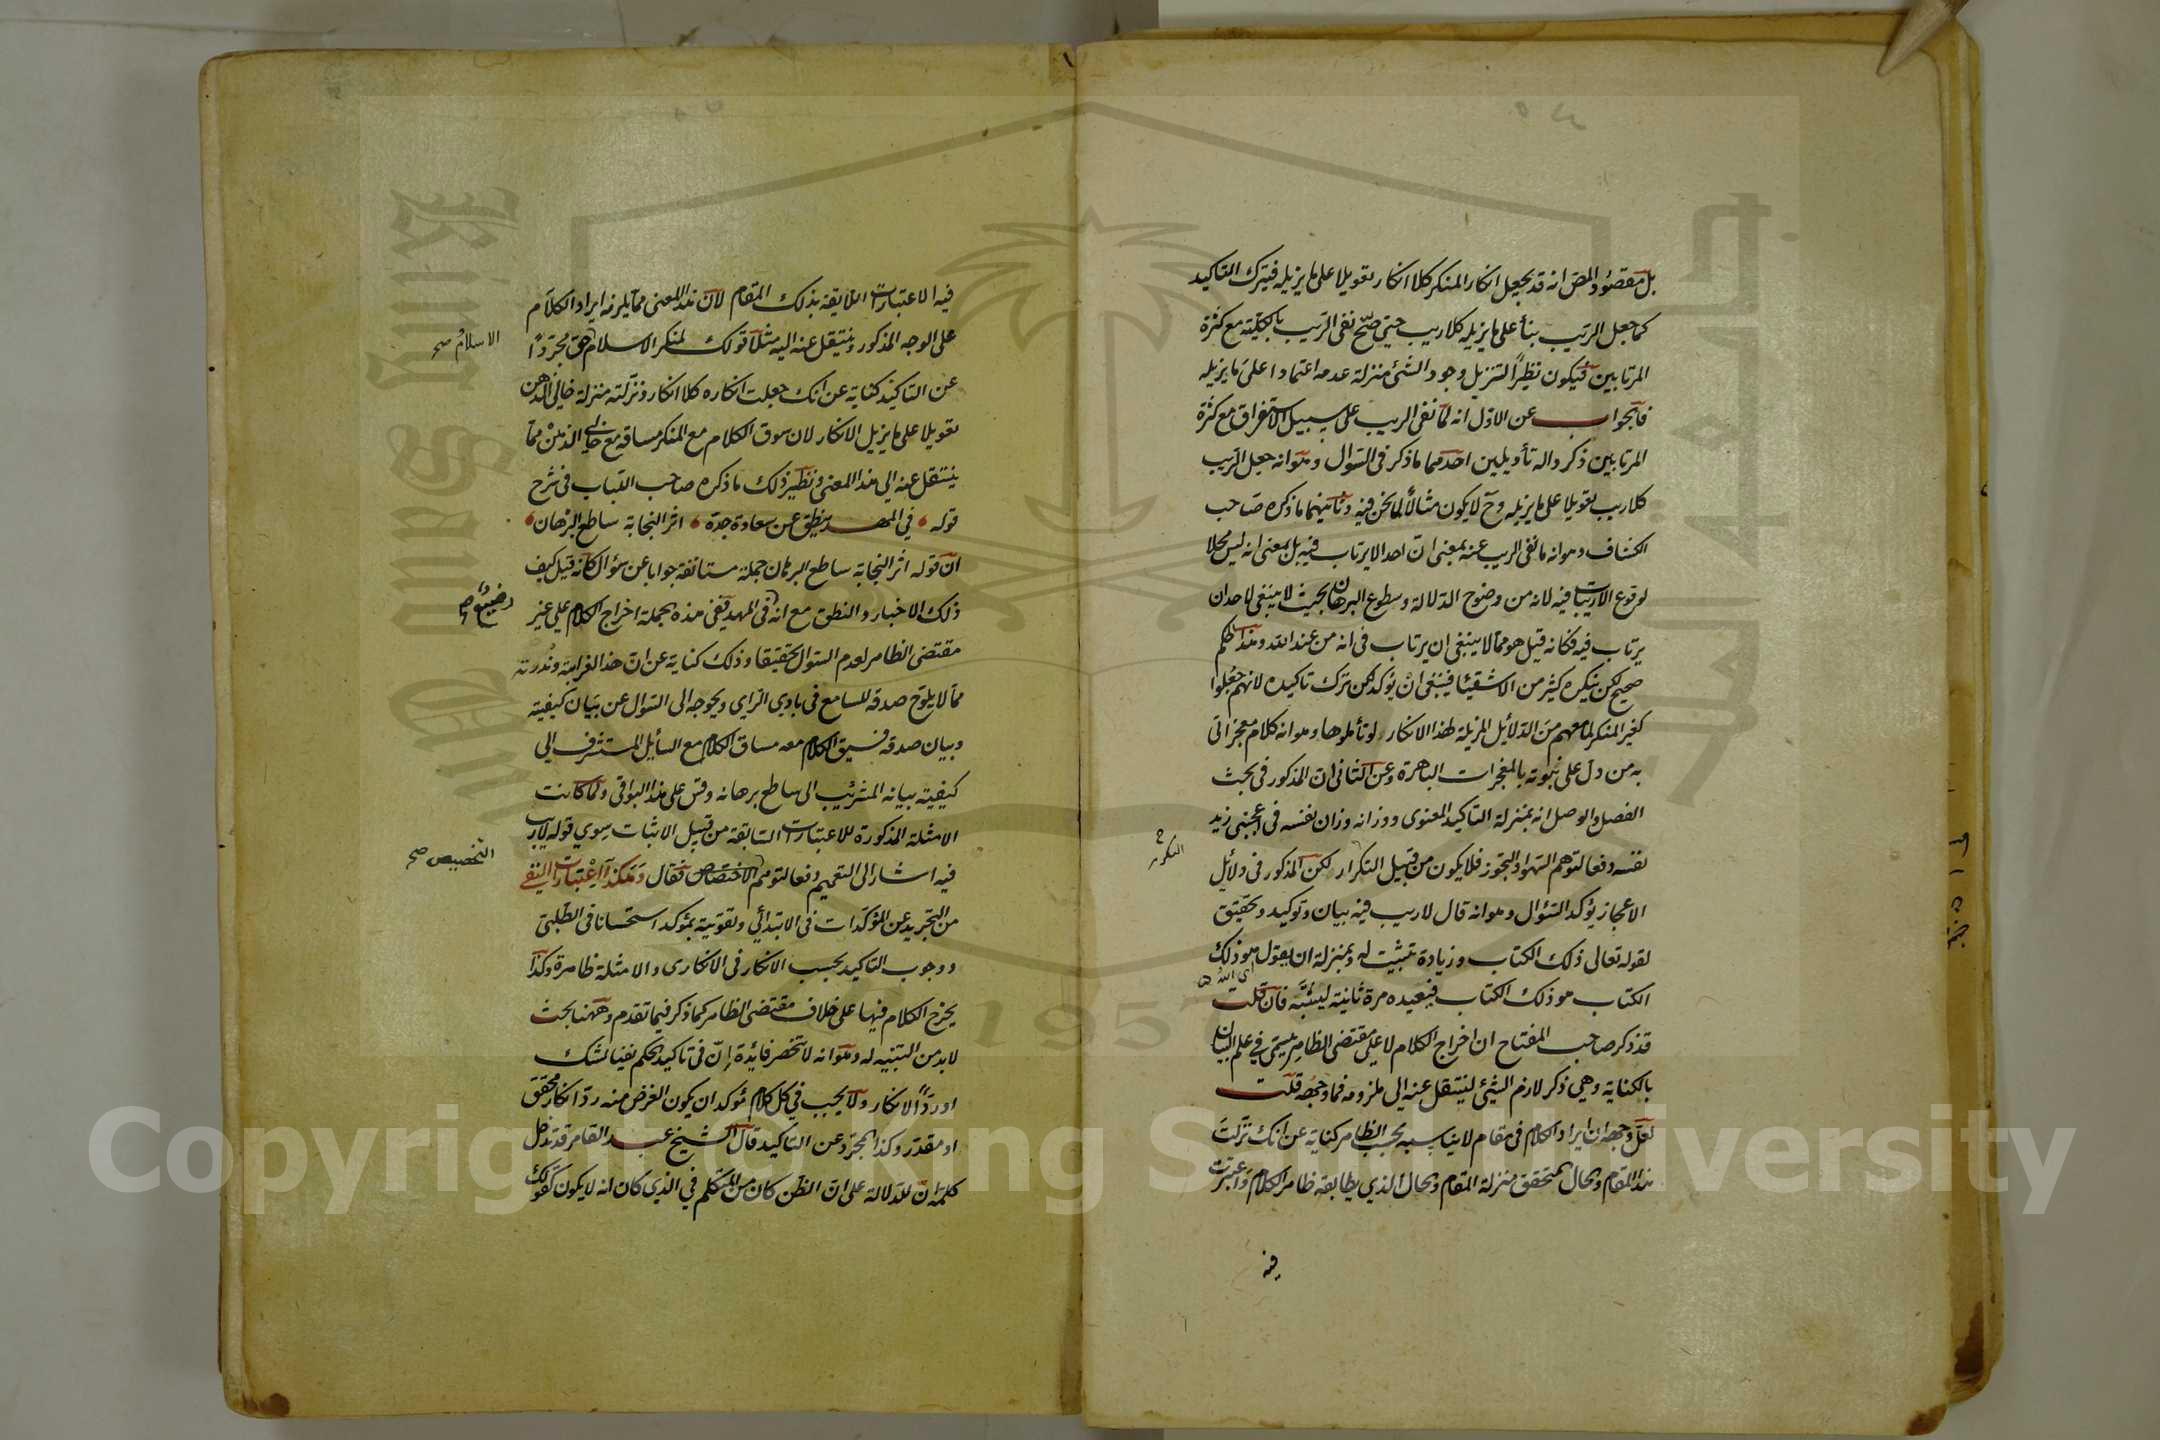 بل مقصود المص انه قد يجعل انكار المنكر كلا انكار تعويلا على ما يزيله فيترك التاكيد
كما جعل الريب بناء على ما يزيله كلاريب حتى صح نفى الريب بالكلية مع كثرة
المرتابين فيكون نظيرا لتنزيل وجود الشئ منزلة عدمه اعتمادا على ما يزيله
فالجواب عن الاول انه لما نفى الريب على سبيل الاستغراق مع كثرة
المرتابين ذكروا له تأويلين احدهما ما ذكر فى السؤال وهو انه جعل الريب
كلاريب تعويلا على ما يزيله وح لا يكون مثالا لما نحن فيه وثانيهما ما ذكره صاحب
الكشاف وهو انه ما نفى الريب عنه بمعنى ان احدا لا يرتاب فيه بل بمعنى انه ليس محلا
لوقوع الارتياب فيه لانه من وضوح الدلالة وسطوع البرهان بحيث لا ينبغى لاحد ان
يرتاب فيه فكانه قيل هو مما لا ينبغى ان يرتاب فى انه من عند الله وهذا حكم
صحيح لكن ينكره كثير من الاشقيئا فينبغى ان يؤكد لكن ترك تاكيده لانهم جعلوا
كغير المنكر لما معهم من الدلائل المزيلة لهذا الانكار لو تأملوها وهو انه كلام معجز اتى
به من دل على نبوته بالمعجزات الباهرة وعن الثانى ان المذكور فى بحث
الفصل والوصل انه بمنزلة التاكيد المعنوى ووزانه وزان نفسه فى اعجبنى زيد
نفسه دفعا لتوهم السهو او التجوز فلا يكون من قبيل التكرار لكن المذكور فى دلائل
التكرير
الاعجاز يؤكد السئوال وهو انه قال لاريب فيه بيان وتوكيد وتحقيق
لقوله تعالى ذلك الكتاب وزيادة تثبيت له وبمنزلة ان يقول هو ذلك
الكتاب هو ذلك الكتاب فيعيده مرة ثانية ليثبته فان قلت
قد ذكر صاحب المفتاح ان اخراج الكلام لا على مقتضى الظاهر يسمى فى علم البيان
بالكناية وهي ذكر لازم الشيئ لينتقل عنه الى ملزومه فما وجهه قلت
لعل وجهه ان ايراد الكلام فى مقام لا يناسبه بحسب الظاهر كناية عن انك نزلت
هذا المقام والحال المتحقق منزلة المقام والحال الذي يطابقه ظاهر الكلام واعتبرت
فيه
فيه الاعتبارات اللايقة بذلك المقام لان هذا المعنى مما يلزمه ايراد الكلام
على الوجه المذكور وينتقل عنه اليه مثلا قولك لمنكر الاسلام حق مجردا
الاسلام صح
عن التاكيد كناية عن انك جعلت انكاره كلا انكار ونزلته منزلة خالى الذهن
تعويلا على ما يزيل الانكار لان سوق الكلام مع المنكر مساقه مع خالى الذهن مما
ينتقل عنه الى هذا المعنى ونظير ذلك ما ذكره صاحب اللباب فى شرح
قوله فى المهد ينطق عن سعادة جده اثر النجابة ساطع البرهان
ان قوله اثر النجابة ساطع البرهان جملة مستانفة جوابا عن سؤال كانه قيل كيف
ذلك الاخبار والنطق مع انه فى المهد ففى هذه الجملة اخراج الكلام على غير
رضيعا صح
مقتضى الظاهر لعدم السئوال تحقيقا وذلك كناية عن ان هذا لغرابته وندرته
مما لا يلوح صدقه للسامع فى بادي الراي ويحوجه الى السئوال عن بيان كيفيته
وبيان صدقه فسيق الكلام معه مساق الكلام مع السائل المستشرف الى
كيفية بيانه المشرئب الى ساطع برهانه وقس على هذا البواقى ولما كانت
الامثلة المذكورة للاعتبارات السابقة من قبيل الاثبات سوى قوله لاريب
فيه اشار الى التعميم دفعا لتوهم الاختصاص فقال وهكذا اعتبارات النفى
التخصيص صح
من التجريد عن المؤكدات فى الابتدائي وتقويته بمؤكد استحسانا فى الطلبى
ووجوب التاكيد بحسب الانكار فى الانكارى والامثلة ظاهرة وكذا
يخرج الكلام فيها على خلاف مقتضى الظاهر كما ذكر فيما تقدم وههنا بحث
لابد من التنبيه له وهو انه لا تنحصر فائدة إن فى تاكيد الحكم نفيا لشك
او ردا لانكار ولا يجب فى كل كلام مؤكد ان يكون الغرض منه رد انكار محقق
او مقدر وكذا المجرد عن التاكيد قال الشيخ عبد القاهر قد تدخل
كلمة ان للدلالة على ان الظن كان من المتكلم فى الذي كان انه لا يكون كقولك
Copyright © King Saud University
1957